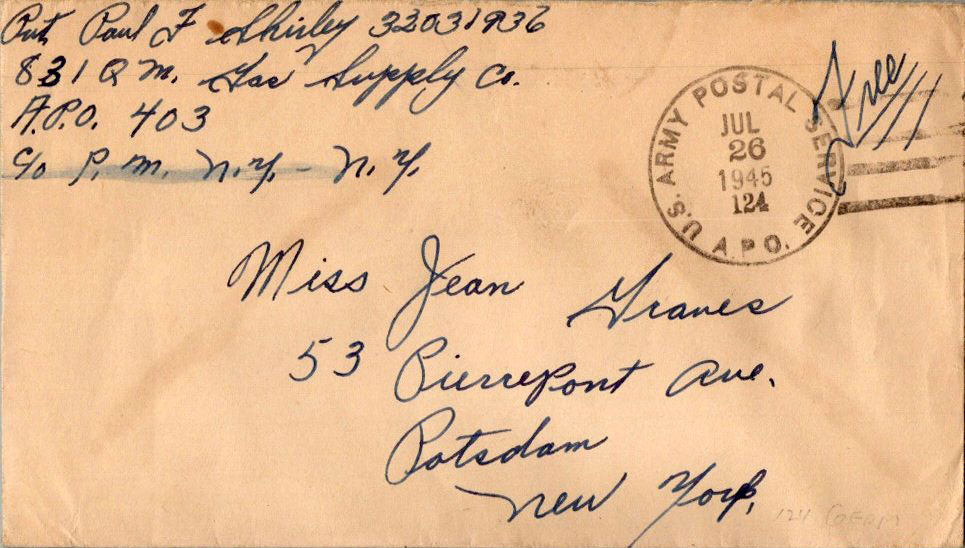 Pvt Paul F Shirley 32031936
831 Q M. Gas Supply Co.
A.P.O. 403
c/o P. M. N.Y. - N.Y.
Free
U.S. ARMY POSTAL SERVICE
JUL
26
1945
124
A.P.O.
Miss Jean Graves
53 Pierrepont Ave.
Potsdam
New York,
124 GERM